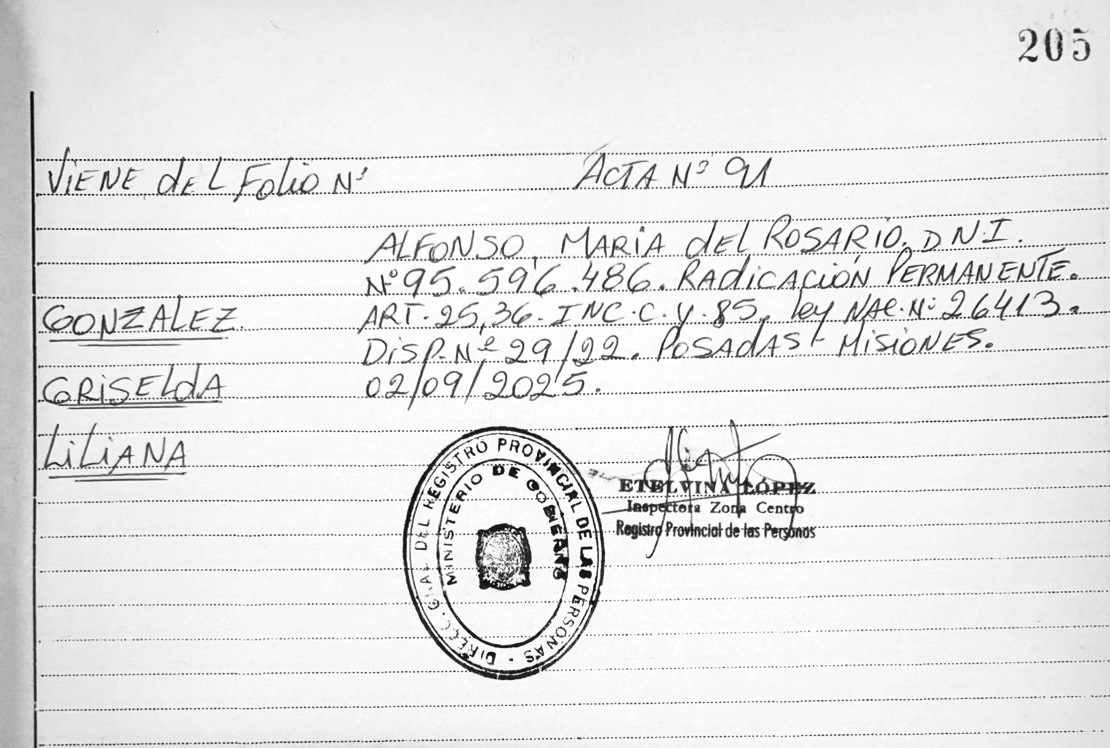 205
VIENE del Folio N° ACTA N° 91
ALFONSO, MARIA del ROSARIO. D.N.I.
N° 95.596.486. RADICACIÓN PERMANENTE.
GONZALEZ ART. 25, 36. INC. C. y. 85. ley NAC. N° 26413.
DISP. Nº 29/22. POSADAS - MISIONES.
GRISELDA 02/09/2025.
LILIANA
DIRECC. GRAL DEL REGISTRO PROVINCIAL DE LAS PERSONAS -
MINISTERIO DE GOBIERNO
ETELVINA LÓPEZ
Inspectora Zona Centro
Registro Provincial de las Personas